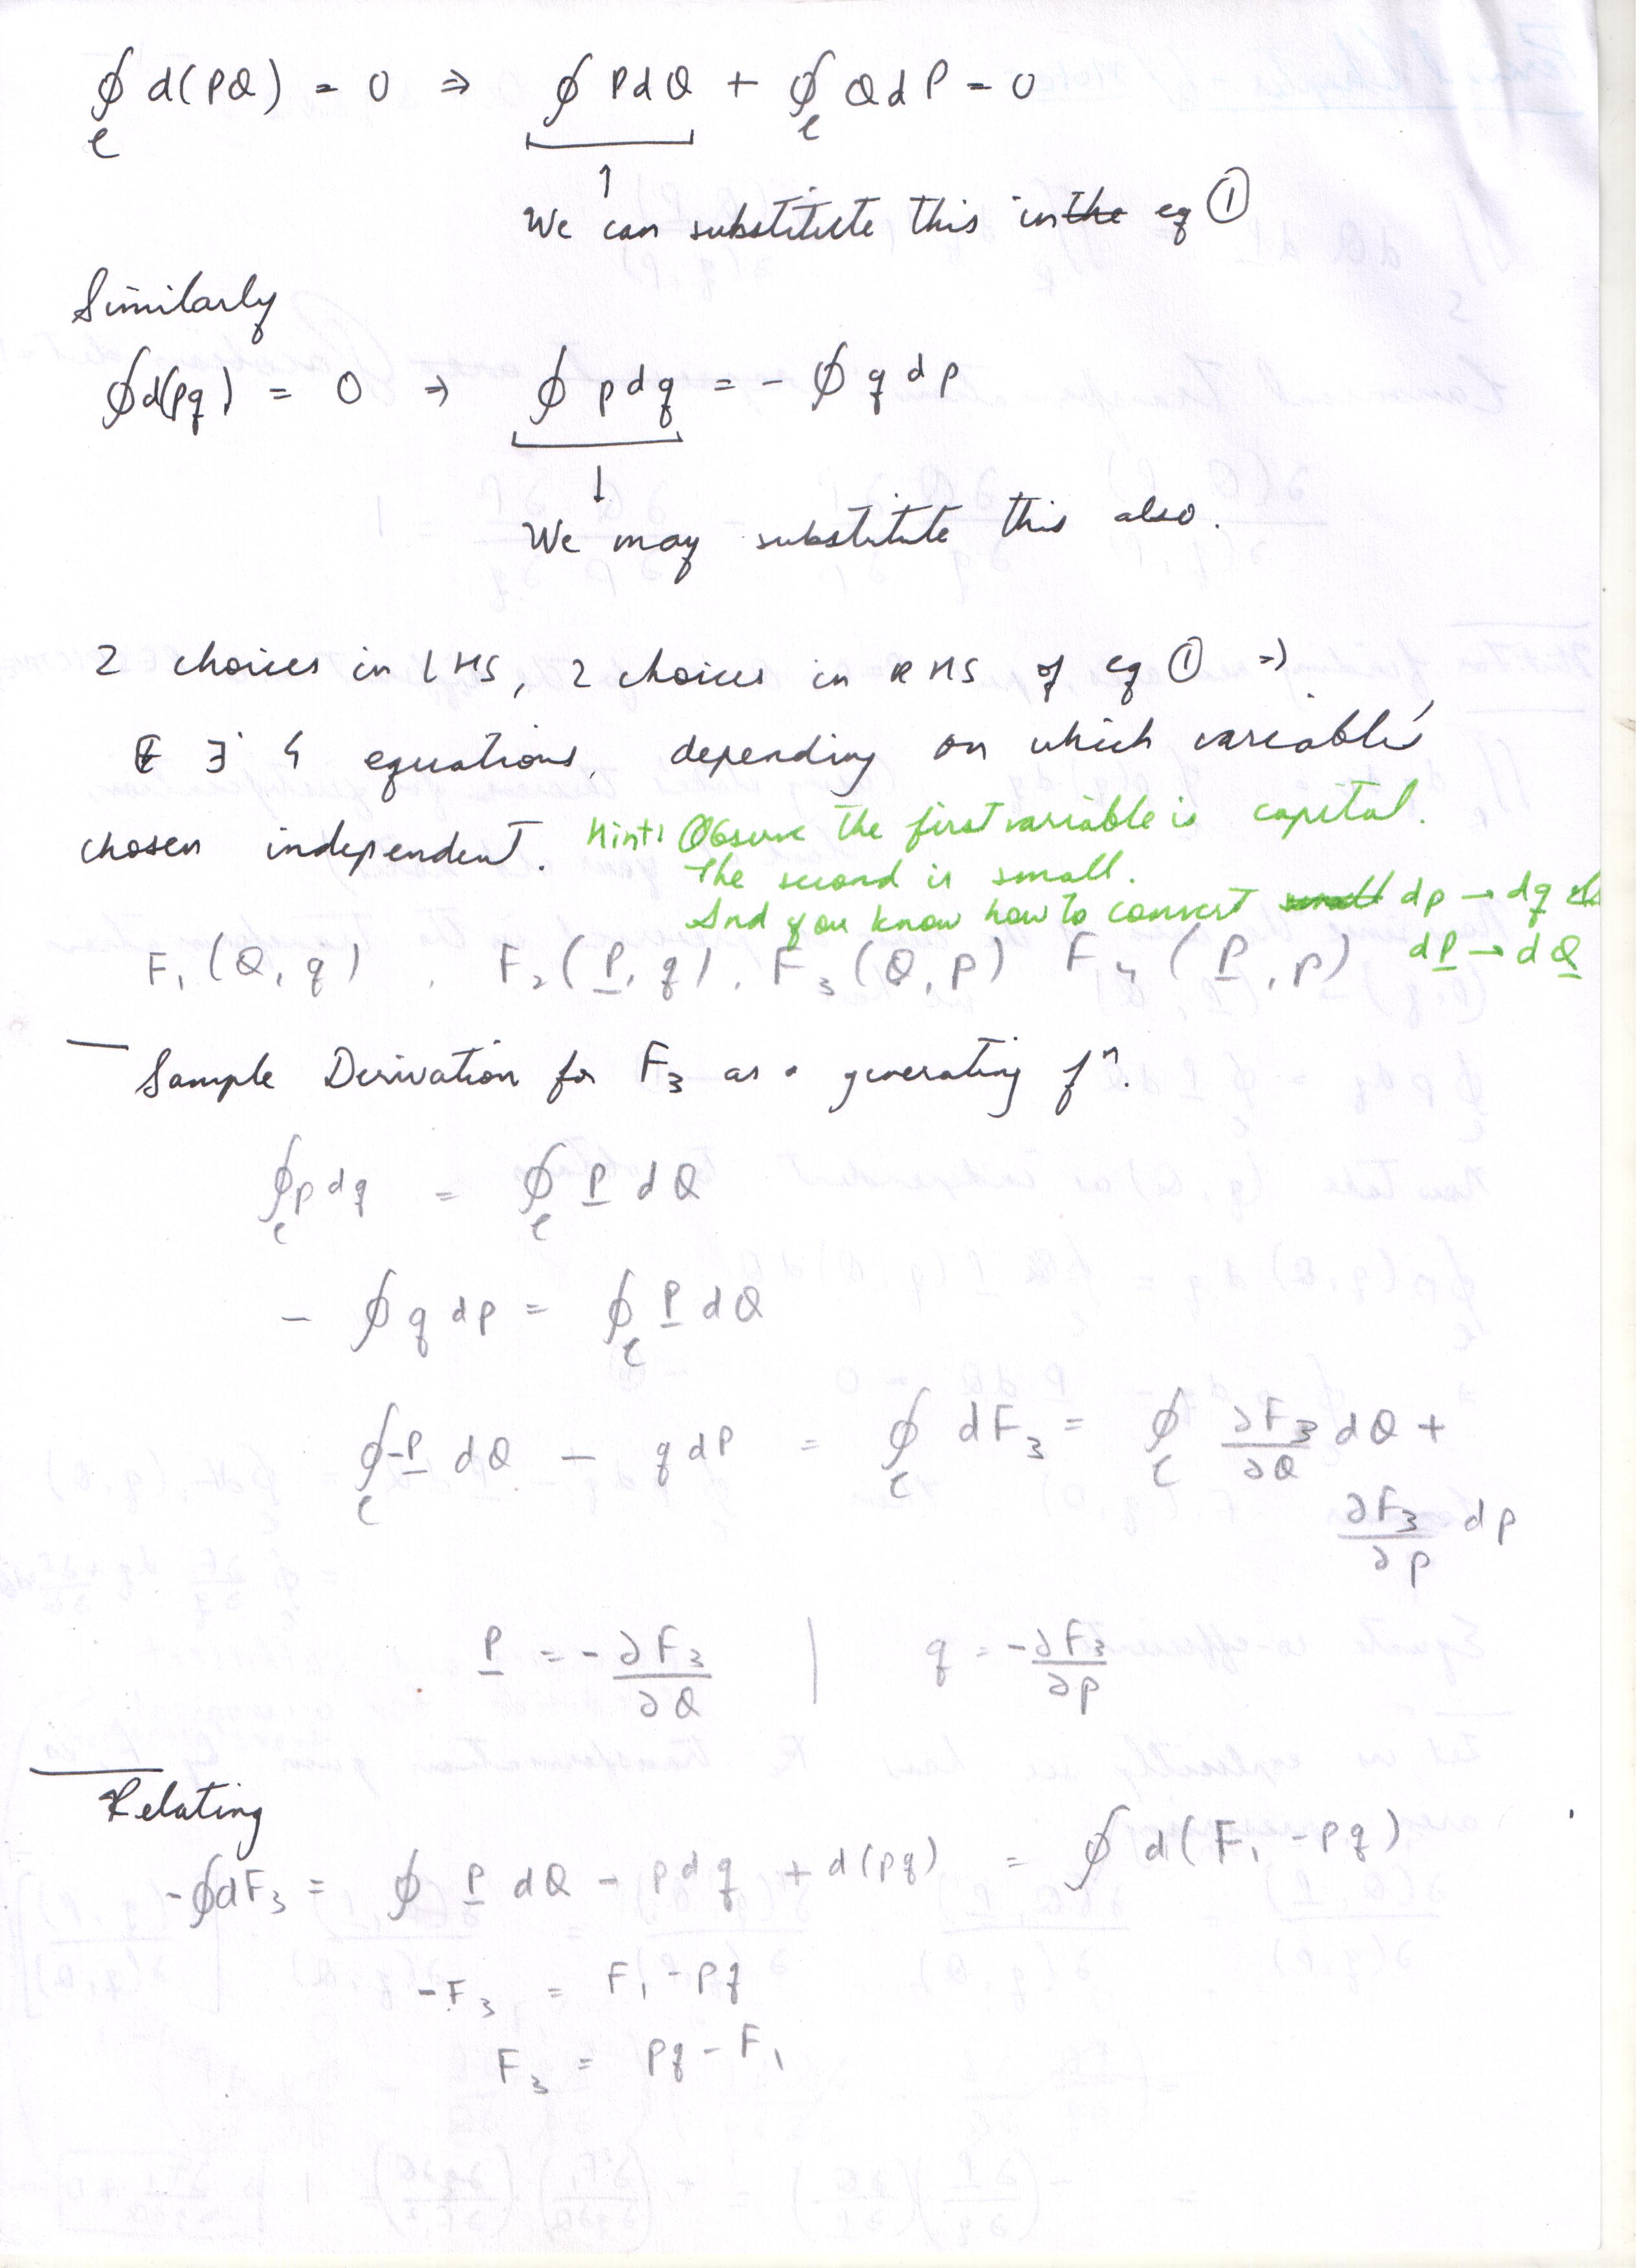 ∮_c d(PQ) = 0 ⇒ ∮ PdQ + ∮_c QdP = 0
↑
We can substitute this in the eq ①
Similarly
∮d(pq) = 0 ⇒ ∮ pdq = - ∮ q dp
↓
We may substitute this also.
2 choices in LHS, 2 choices in RHS of eq ① ⇒
∃ 4 equations, depending on which variables
chosen independent. Hint: Observe the first variable is capital.
The second is small.
And you know how to convert small dp → dq
dP → dQ
F₁(Q, q) , F₂(P, q), F₃(Q, p) F₄(P, p)
Sample Derivation for F₃ as a generating fⁿ.
∮_c pdq = ∮_c P dQ
- ∮ q dp = ∮_c P dQ
∮_c -P dQ - q dP = ∮_c dF₃ = ∮_c ∂F₃/∂Q dQ +
∂F₃/∂p dp
P = - ∂F₃/∂Q | q = -∂F₃/∂p
Relating
-∮dF₃ = ∮ P dQ - pdq + d(pq) = ∮ d(F₁ - pq)
-F₃ = F₁ - pq
F₃ = pq - F₁